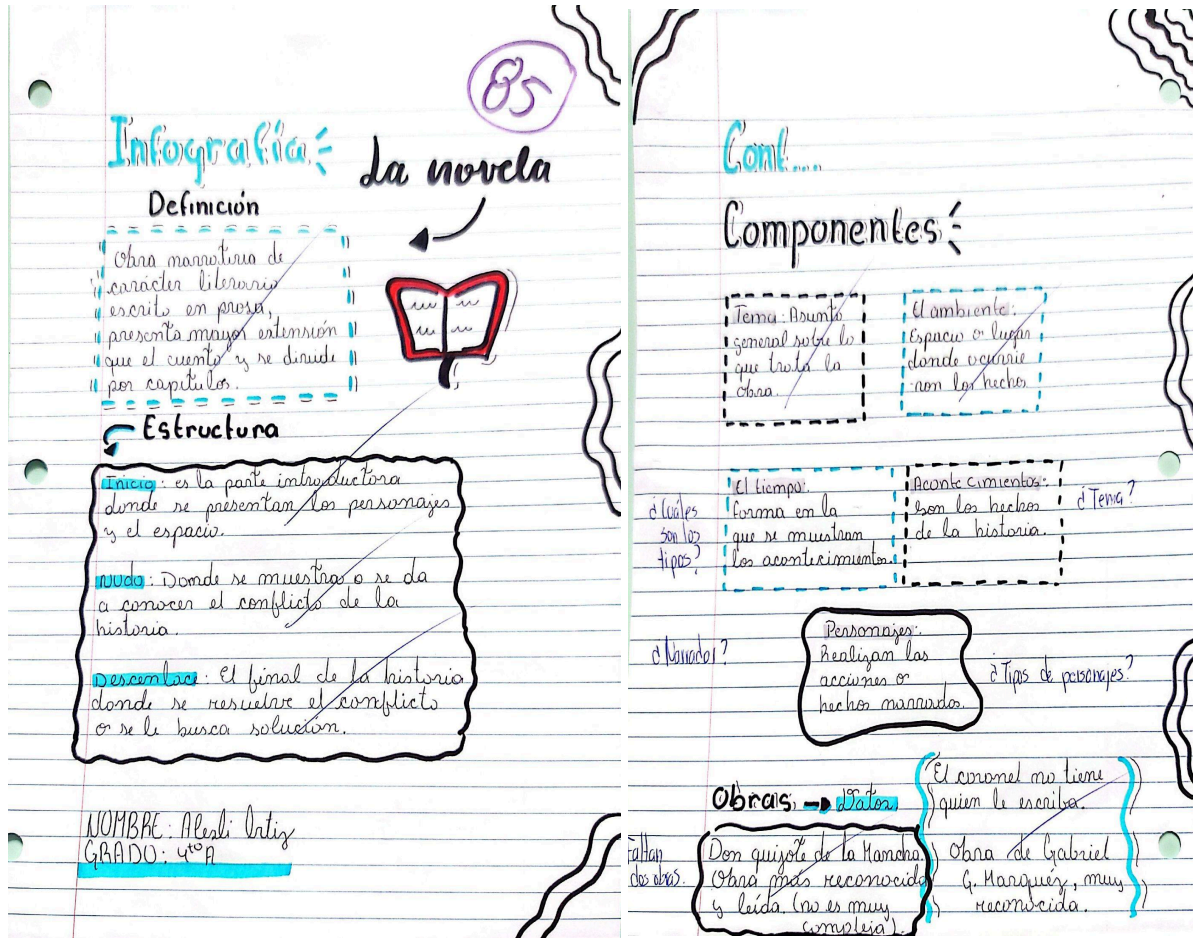 85
Infografía
La novela
Definición
Obra narrativa de
carácter literario
escrito en prosa,
presenta mayor extensión
que el cuento y se divide
por capítulos.
Estructura
Inicio: es la parte introductora
donde se presentan los personajes
y el espacio.
Nudo: Donde se muestra o se da
a conocer el conflicto de la
historia.
Descenlace: El final de la historia
donde se resuelve el conflicto
o se le busca solución.
NOMBRE: Alesli Ortiz
GRADO: 4to A
Cont...
Componentes
Tema: Asunto
general sobre lo
que trata la
obra.
El ambiente:
Espacio o lugar
donde ocurrie
ron los hechos
¿Cuáles
son los
tipos?
El tiempo:
forma en la
que se muestran
los acontecimientos.
Acontecimientos:
son los hechos
de la historia.
¿Tema?
¿Narrador?
Personajes:
Realizan las
acciones o
hechos narrados.
¿Tipos de personajes?
Obras → Datos
Faltan
dos obras.
Don quijote de la Mancha.
Obra más reconocida
y leída. (no es muy
compleja).
El coronel no tiene
quien le escriba.
Obra de Gabriel
G. Marquéz, muy
reconocida.